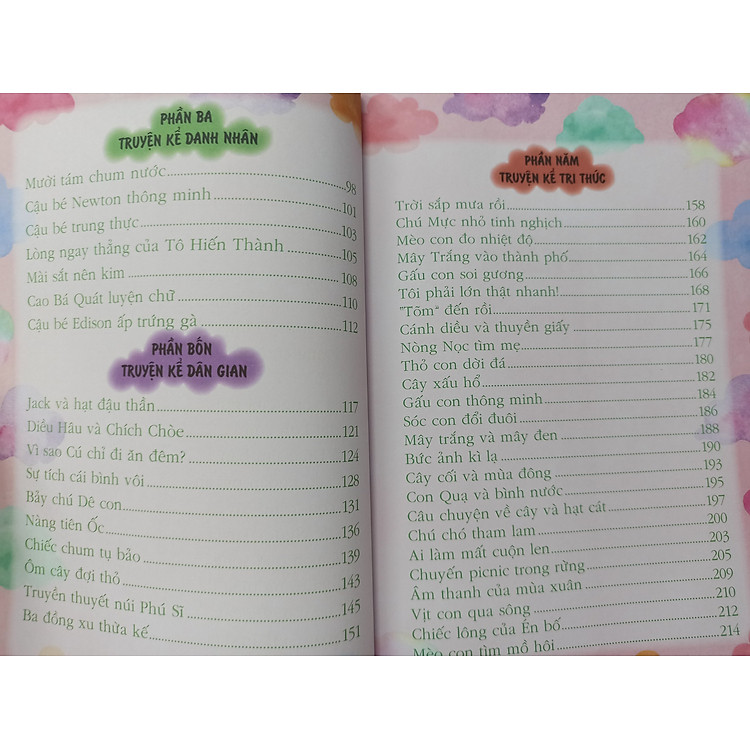 PHẦN BA
TRUYỆN KỂ DANH NHÂN
Mười tám chum nước 98
Cậu bé Newton thông minh 101
Cậu bé trung thực 103
Lòng ngay thẳng của Tô Hiến Thành 105
Mài sắt nên kim 108
Cao Bá Quát luyện chữ 110
Cậu bé Edison ấp trứng gà 112
PHẦN BỐN
TRUYỆN KỂ DÂN GIAN
Jack và hạt đậu thần 117
Diều Hâu và Chích Chòe 121
Vì sao Cú chỉ đi ăn đêm? 124
Sự tích cái bình vôi 128
Bảy chú Dê con 131
Nàng tiên Ốc 136
Chiếc chum tụ bảo 139
Ôm cây đợi thỏ 143
Truyền thuyết núi Phú Sĩ 145
Ba đồng xu thừa kế 151
PHẦN NĂM
TRUYỆN KỂ TRI THỨC
Trời sắp mưa rồi 158
Chú Mực nhỏ tinh nghịch 160
Mèo con đo nhiệt độ 162
Mây Trắng vào thành phố 164
Gấu con soi gương 166
Tôi phải lớn thật nhanh! 168
"Tõm" đến rồi 171
Cánh diều và thuyền giấy 175
Nòng Nọc tìm mẹ 177
Thỏ con dời đá 180
Cây xấu hổ 182
Gấu con thông minh 184
Sóc con đổi đuôi 186
Mây trắng và mây đen 188
Bức ảnh kì lạ 190
Cây cối và mùa đông 193
Con Quạ và bình nước 195
Câu chuyện về cây và hạt cát 197
Chú chó tham lam 200
Ai làm mất cuộn len 203
Chuyến picnic trong rừng 205
Âm thanh của mùa xuân 209
Vịt con qua sông 210
Chiếc lông của Én bố 212
Mèo con tìm mồ hôi 214